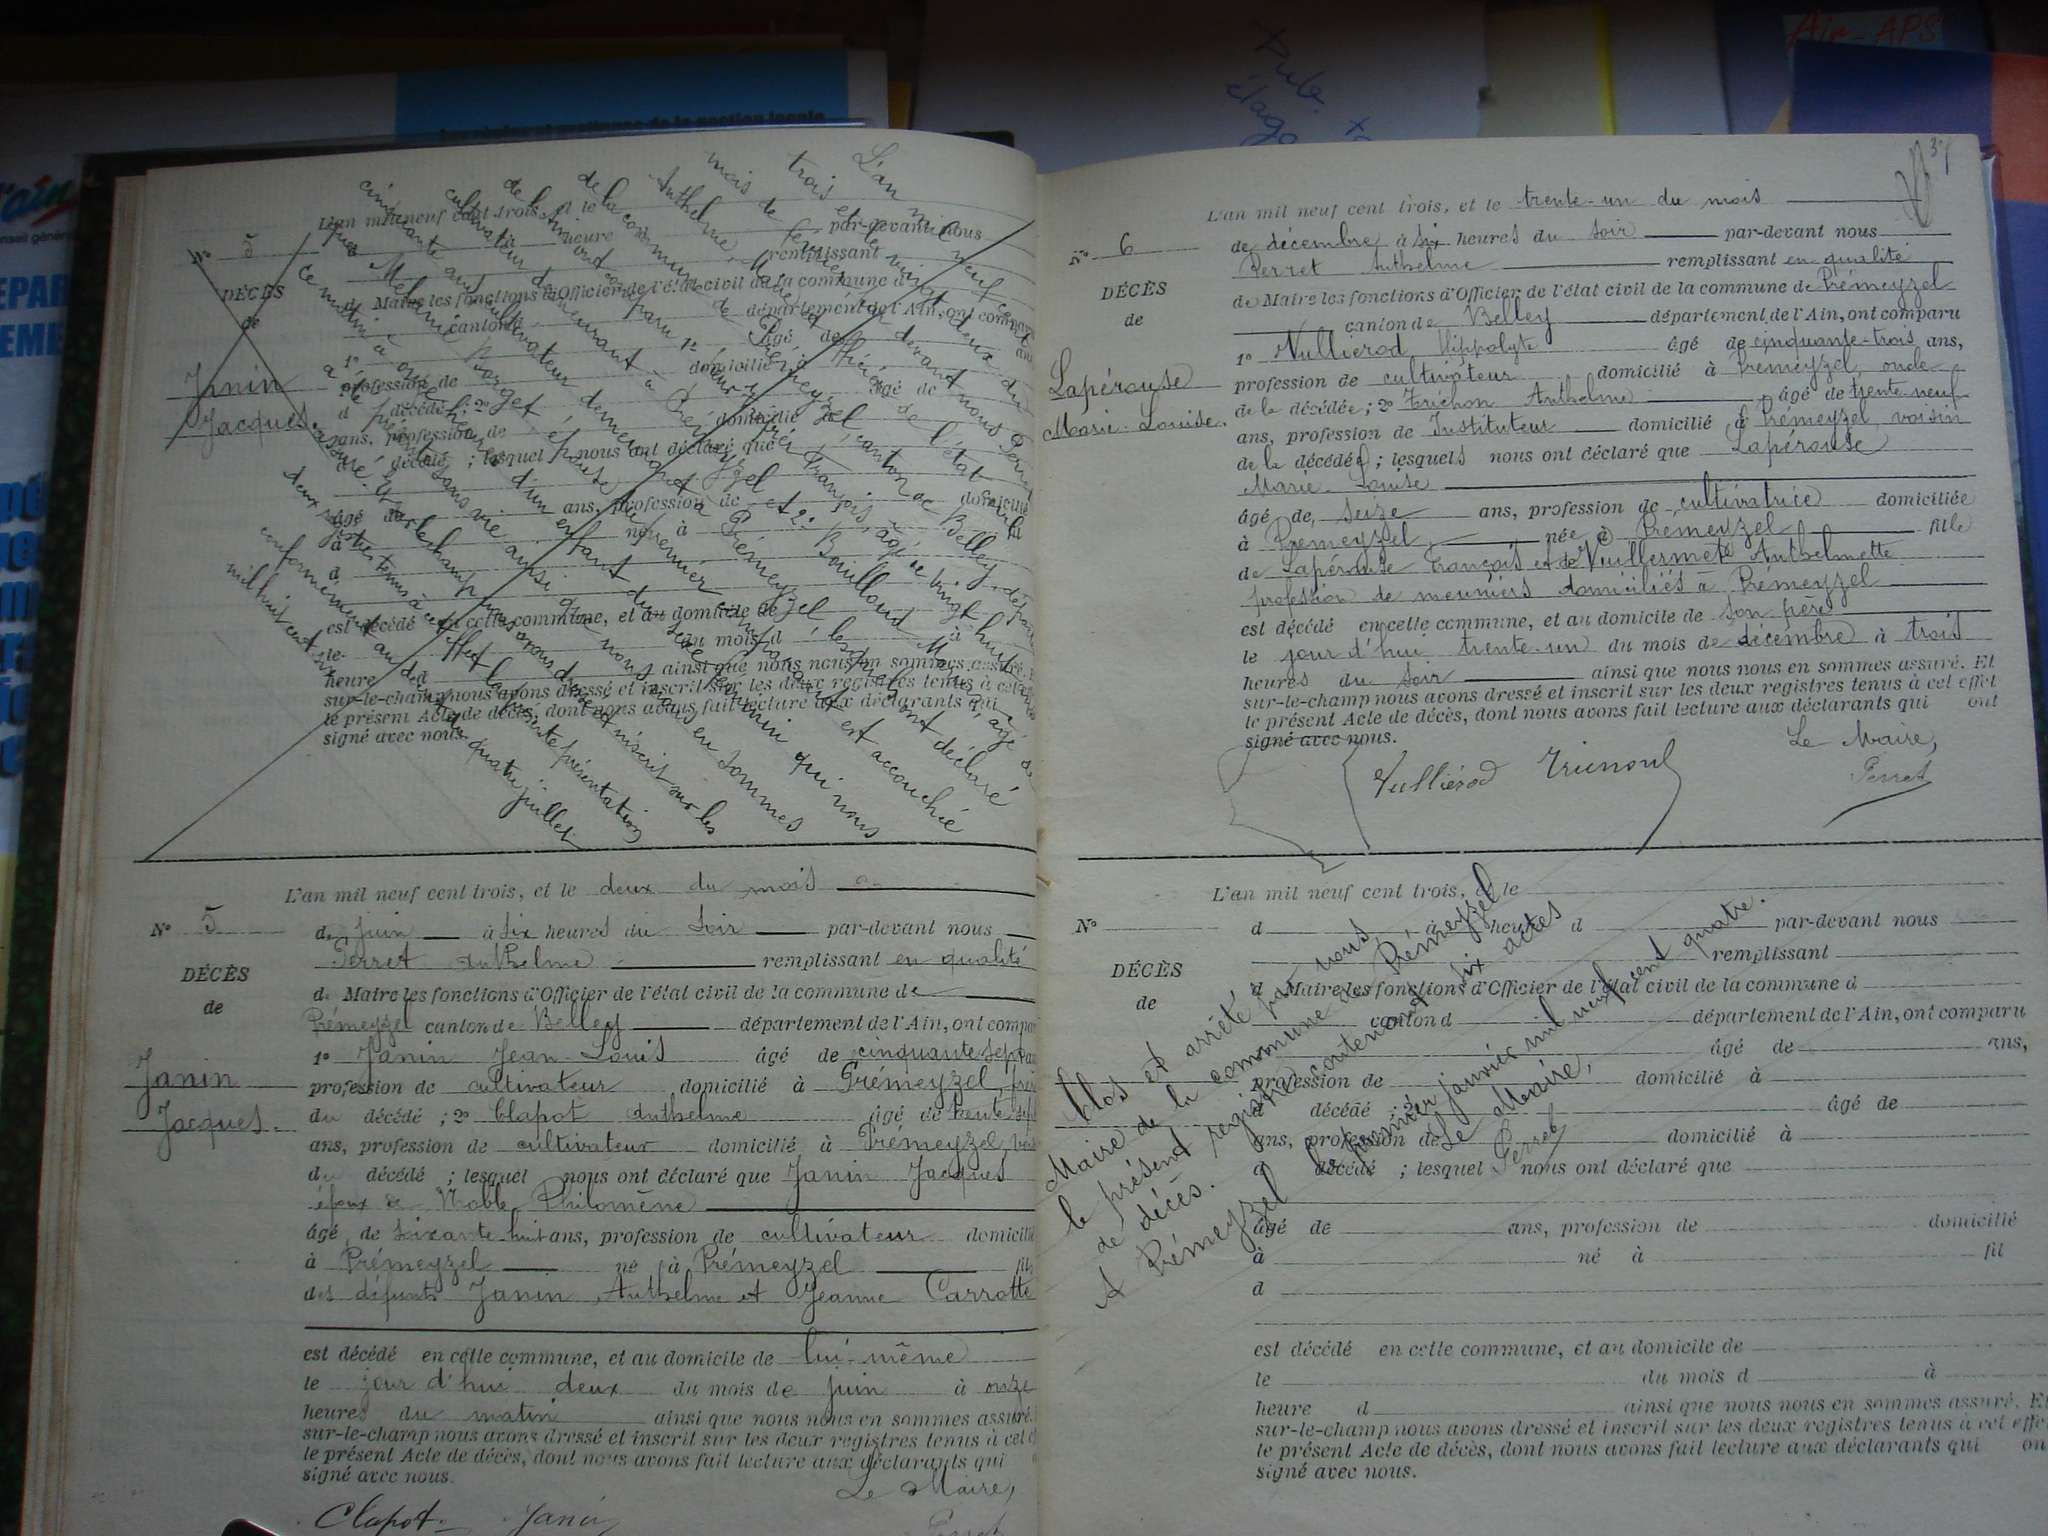 Ain-APS
37
N° 5
DÉCÈS
de
Janin
Jacques
L'an mil neuf cent trois, et le
heure par-devant nous
remplissant
d Maire les fonctions d'Officier de l'état civil de la commune d
canton d département de l'Ain, ont comparu
1° âgé de
profession de domicilié à
d décédé ; 2° âgé de
ans, profession de domicilié
d décédé ; lesquel nous ont déclaré que
âgé de ans, profession de domicilié
à né à
d
est décédé en cette commune, et au domicile de
le du mois d à
heure d ainsi que nous nous en sommes assuré.
sur-le-champ nous avons dressé et inscrit sur les deux registres tenus à cet
le présent Acte de décès, dont nous avons fait lecture aux déclarants qui
signé avec nous.
L'an mil neuf cent
trois et le vingt deux du
mois de février devant nous Perret
Anthelme, Maire et officier de l'état
de la commune de Prémeyzel, canton de Belley,
de l'Ain ont comparu 1° François, âgé de vingt huit
cultivateur demeurant à Prémeyzel et 2° Bouilloud
cinquante ans cultivateur demeurant à Prémeyzel lesquels ont déclaré
que Mélanie Borget épouse du premier comparant est accouchée
ce matin à onze heures d'un enfant du sexe féminin qui nous
a été présenté sans vie ainsi que nous nous en sommes
assuré. Et sur le champ nous avons dressé et inscrit sur les
deux registres tenus à cet effet la présente présentation
conformément au décret du quatre juillet
mil huit cent six
L'an mil neuf cent trois, et le deux du mois
N° 5 de juin à six heures du soir par-devant nous
Perret Anthelme remplissant en qualité
DÉCÈS
de Maire les fonctions d'Officier de l'état civil de la commune de
de
Prémeyzel canton de Belley département de l'Ain, ont compar
1° Janin Jean-Louis âgé de cinquante sept
Janin
profession de cultivateur domicilié à Prémeyzel
Jacques.
du décédé ; 2° Clapot Anthelme âgé de trente sept
ans, profession de cultivateur domicilié à Prémeyzel
du décédé ; lesquel nous ont déclaré que Janin Jacques
époux de Noble Philomène
âgé de soixante-huit ans, profession de cultivateur domicilié
à Prémeyzel né à Prémeyzel fils
des défunts Janin Anthelme et Jeanne Carrotte
est décédé en cette commune, et au domicile de lui-même
le jour d'hui deux du mois de juin à onze
heures du matin ainsi que nous nous en sommes assuré.
sur-le-champ nous avons dressé et inscrit sur les deux registres tenus à cet
le présent Acte de décès, dont nous avons fait lecture aux déclarants qui
signé avec nous.
Le Maire,
Clapot. Janin Perret
L'an mil neuf cent trois, et le trente-un du mois
N° 6 de décembre à six heures du soir par-devant nous
Perret Anthelme remplissant en qualité
DÉCÈS
de Maire les fonctions d'Officier de l'état civil de la commune de Prémeyzel
de
canton de Belley département de l'Ain, ont comparu
1° Vulliérod Hippolyte âgé de cinquante-trois ans,
Lapérouse
profession de cultivateur domicilié à Prémeyzel, oncle
Marie-Louise.
de la décédée ; 2° Trichon Anthelme âgé de trente neuf
ans, profession de Instituteur domicilié à Prémeyzel, voisin
de la décédée ; lesquels nous ont déclaré que Lapérouse
Marie-Louise
âgé de seize ans, profession de cultivatrice domiciliée
à Prémeyzel née à Prémeyzel fille
de Lapérouse François et de Vuillermet Anthelmette
profession de meuniers domiciliés à Prémeyzel
est décédé en cette commune, et au domicile de son père
le jour d'hui trente-un du mois de décembre à trois
heures du soir ainsi que nous nous en sommes assuré. Et
sur-le-champ nous avons dressé et inscrit sur les deux registres tenus à cet effet
le présent Acte de décès, dont nous avons fait lecture aux déclarants qui ont
signé avec nous.
Le Maire,
Vulliérod Trichon Perret
L'an mil neuf cent trois, et le
N° d à heure d par-devant nous
remplissant
DÉCÈS
d Maire les fonctions d'Officier de l'état civil de la commune d
de
canton d département de l'Ain, ont comparu
âgé de ans,
profession de domicilié à
d décédé ; 2° âgé de
ans, profession de domicilié à
d décédé ; lesquel nous ont déclaré que
âgé de ans, profession de domicilié
à né à fil
d
est décédé en cette commune, et au domicile de
le du mois d à
heure d ainsi que nous nous en sommes assuré. Et
sur-le-champ nous avons dressé et inscrit sur les deux registres tenus à cet effe
le présent Acte de décès, dont nous avons fait lecture aux déclarants qui on
signé avec nous.
Clos et arrêté par nous,
Maire de la commune de Prémeyzel
le présent registre contenant six actes
de décès.
A Prémeyzel le premier janvier mil neuf cent quatre.
Le Maire,
Perret